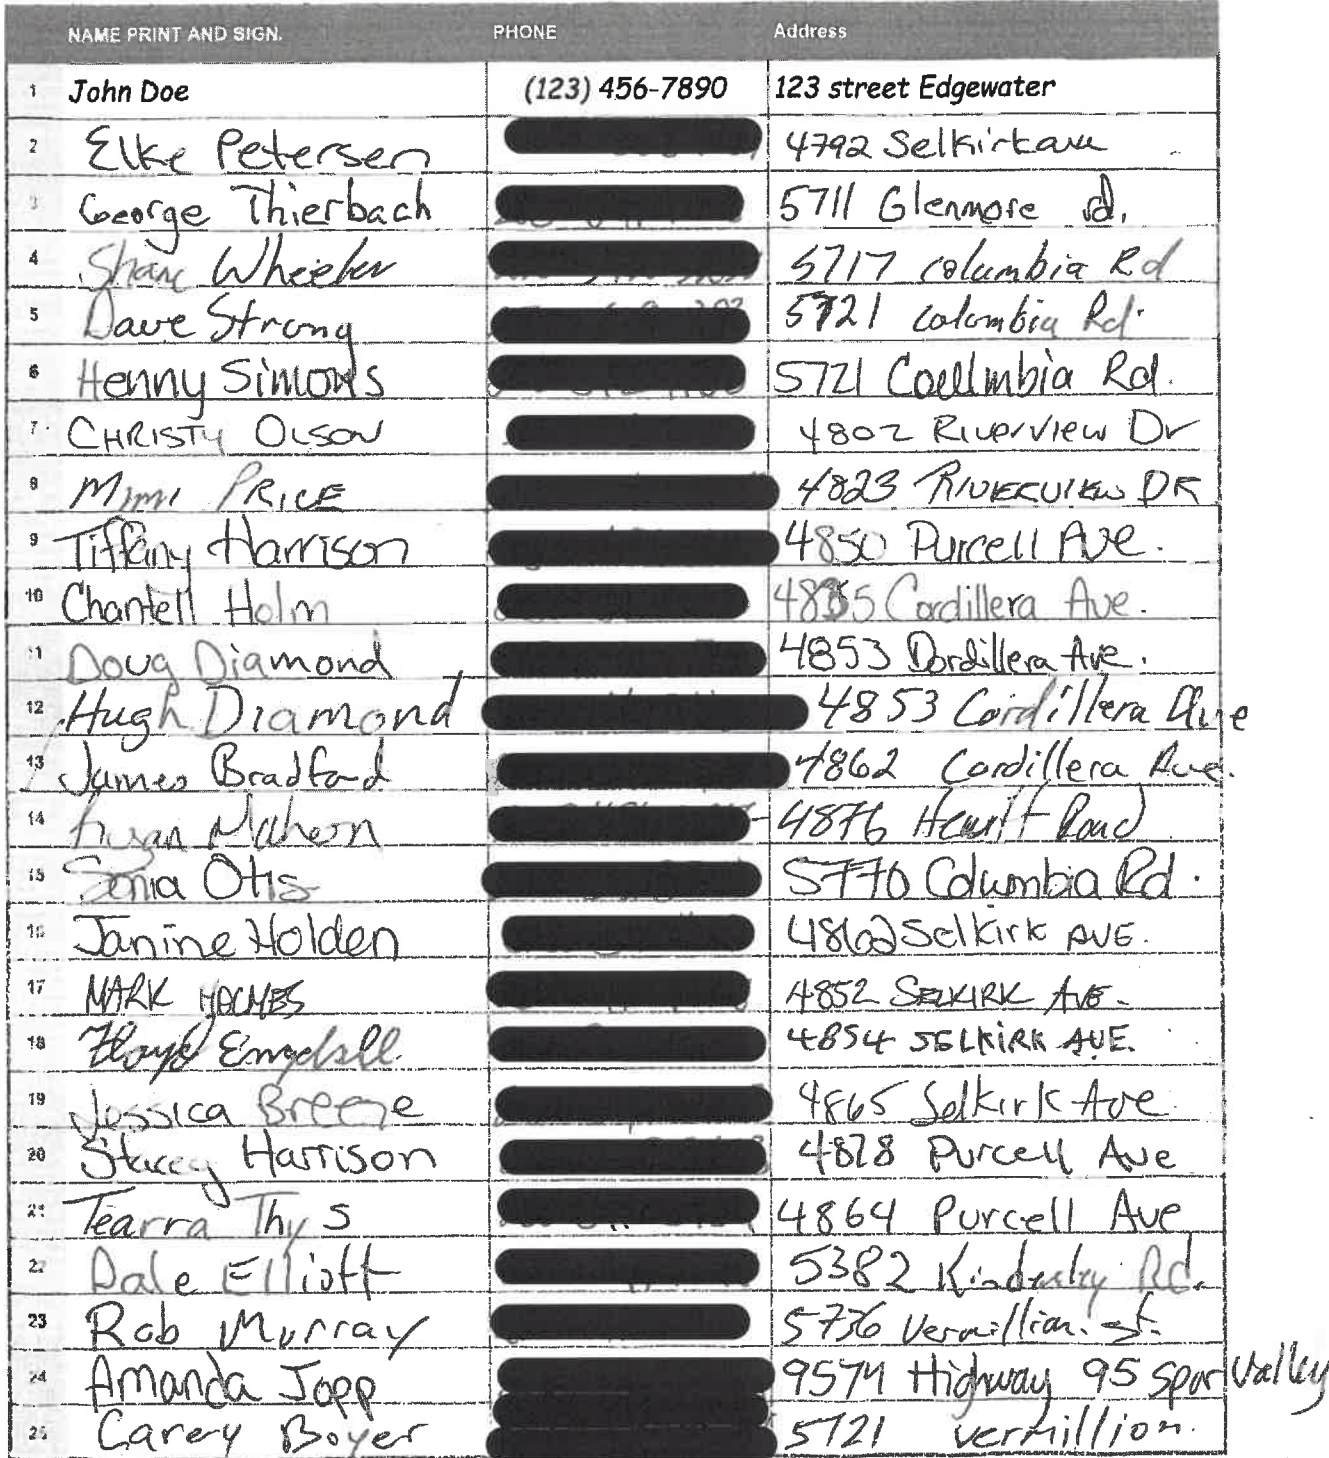 NAME PRINT AND SIGN. PHONE Address
1 John Doe (123) 456-7890 123 street Edgewater
2 Elke Petersen 4792 Selkirk ave
3 George Thierbach 5711 Glenmore rd.
4 Shane Wheeler 5717 columbia Rd
5 Dave Strong 5721 columbia Rd.
6 Henny Simons 5721 Coullmbia Rd.
7 CHRISTY OLSON 4802 Riverview Dr
8 Mimi PRICE 4823 RIVERVIEW DR
9 Tiffany Harrison 4850 Purcell Ave.
10 Chantell Holm Cordillera Ave.
11 Doug Diamond 4853 Dordillera Ave.
12 Hugh Diamond 4853 Cordillera Ave
13 James Bradford 4862 Cordillera Ave.
14 4876 Hewitt Road
15 Sonia Otis 5770 Columbia Rd.
16 Janine Holden 4862 Selkirk AVE.
17 MARK HOLMES 4852 SELKIRK AVE.
18 Floyd 4854 SELKIRK AUE.
19 Jessica Breeze 4865 Selkirk Ave
20 Stacey Harrison 4878 Purcell Ave
21 Tearra Thys 4864 Purcell Ave
22 Dale Elliott 5382 Kindersley Rd.
23 Rob Murray 5736 Vermillion st.
24 Amanda Jopp 9574 Highway 95 Spur Valley
25 Carey Boyer 5721 vermillion.